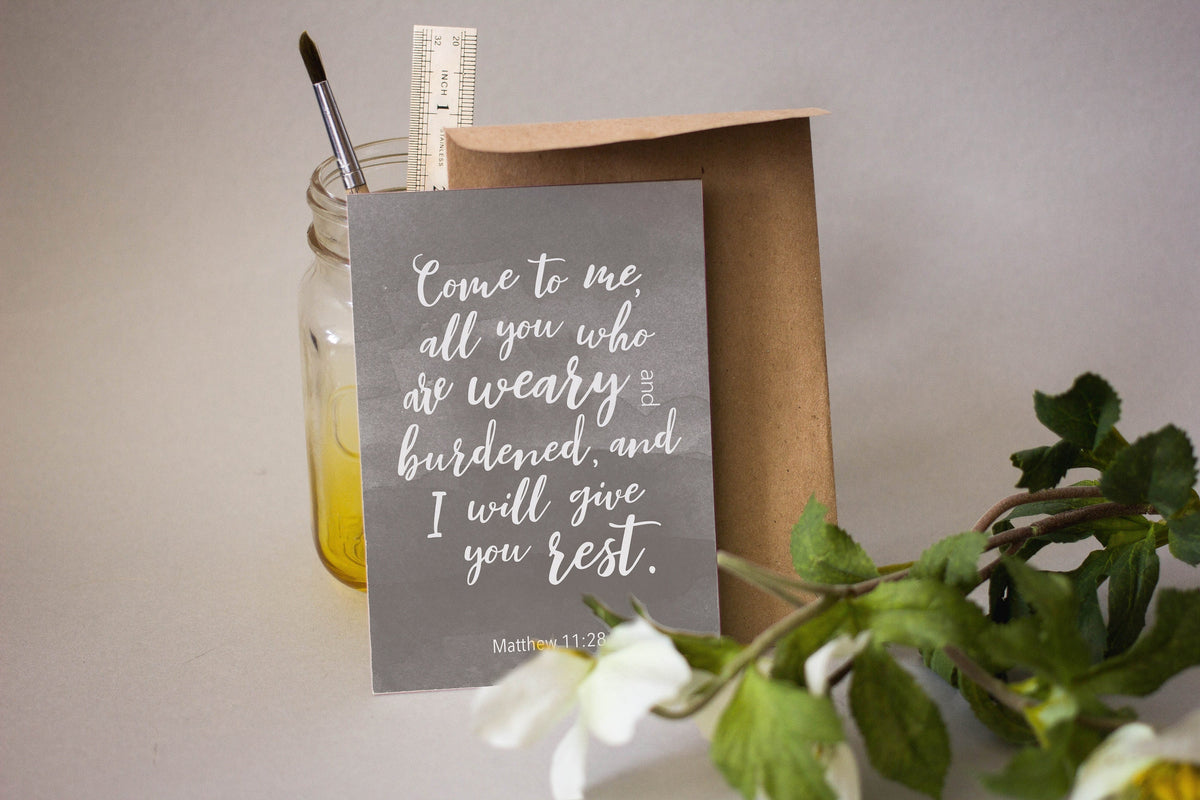 32 20
INCH 1
STAINLESS
2
Come to me,
all you who
are weary and
burdened, and
I will give
you rest.
Matthew 11:28